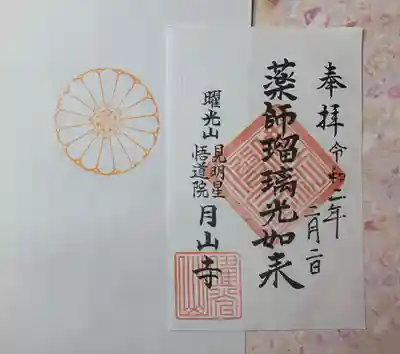 奉拝 令和二年二月二日
薬師瑠璃光如来
曜光山 見明星悟道院 月山寺